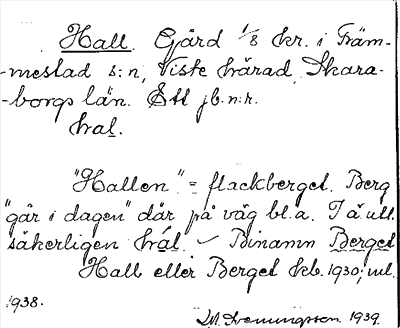 Hall. Gård 1/8 kr. i Främ-
-mestad s:n, Viste härad, Skara-
-borgs län. Ett jb.n:r.
hal.
"Hallen" = flackberget. Berg
"går i dagen" där på väg bl.a. I ä. utt.
säkerligen hál. – Binamn Berget
Hall eller Berget keb. 1930; utl.
1938.
1939.